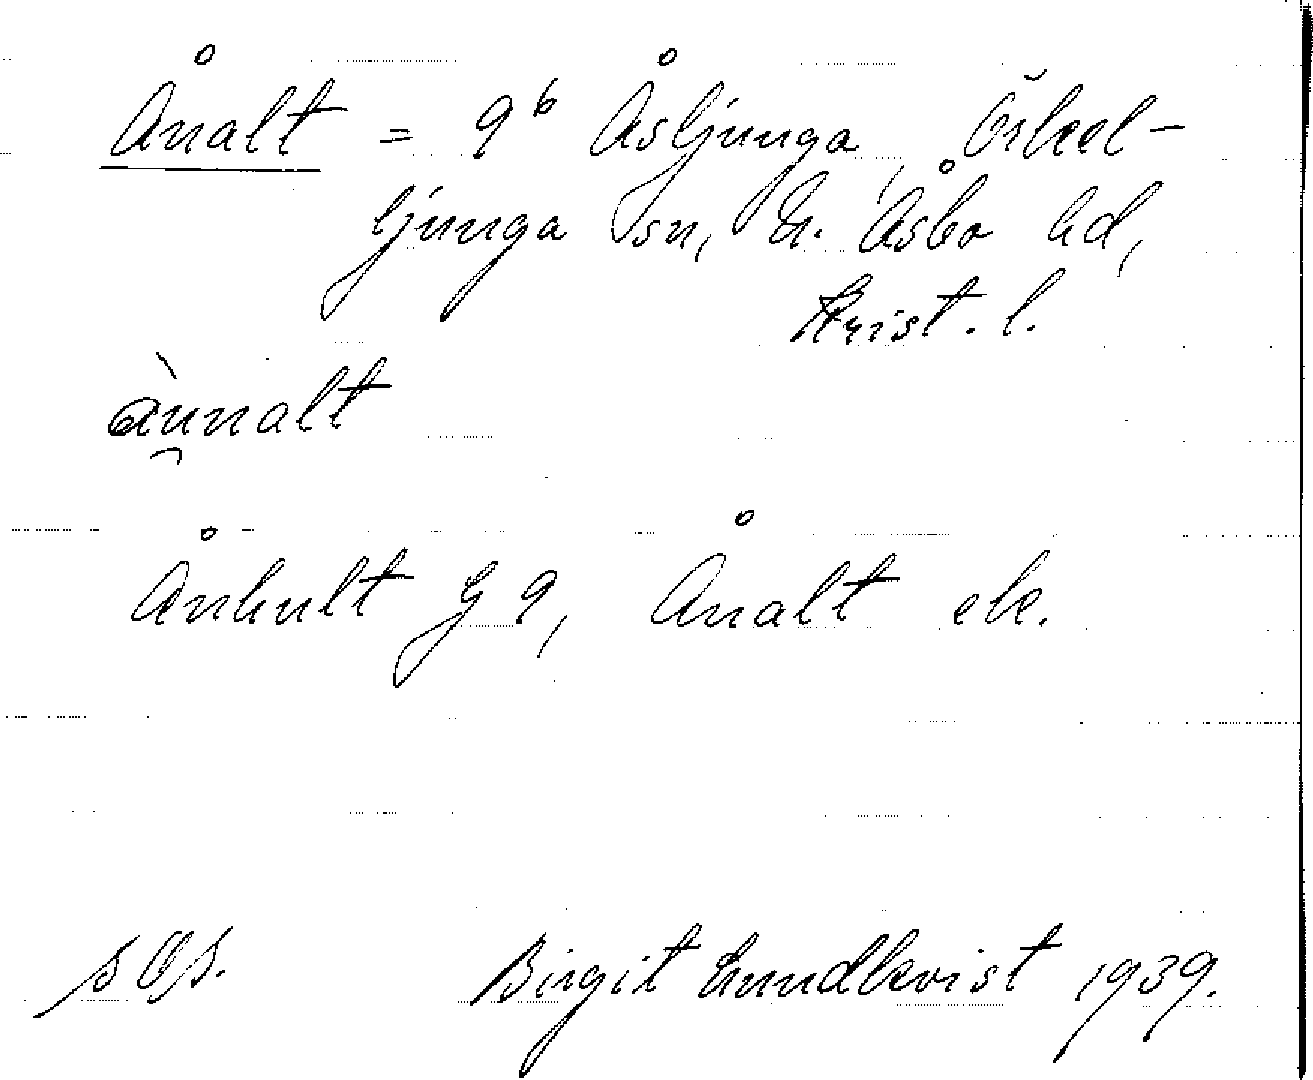 Ånalt = 9ᵇ Åsljunga, Örkel-
ljunga sn, N. Åsbo hd,
Krist. l.
ànnalt
Ånhult G 9, Ånalt ek.
SOS. Birgit Lundkvist 1939.